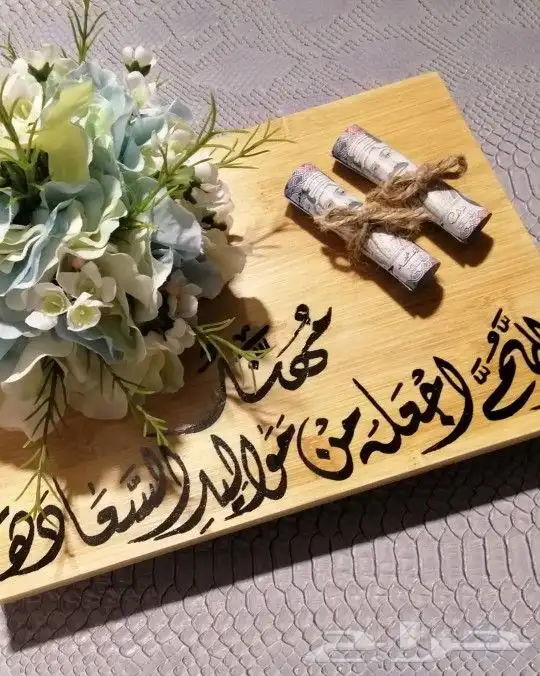 مُهنّد
اللَّهُمَّ اجْعَلَه مِنْ مَوَاليدِ السَّعَادَة
حراج